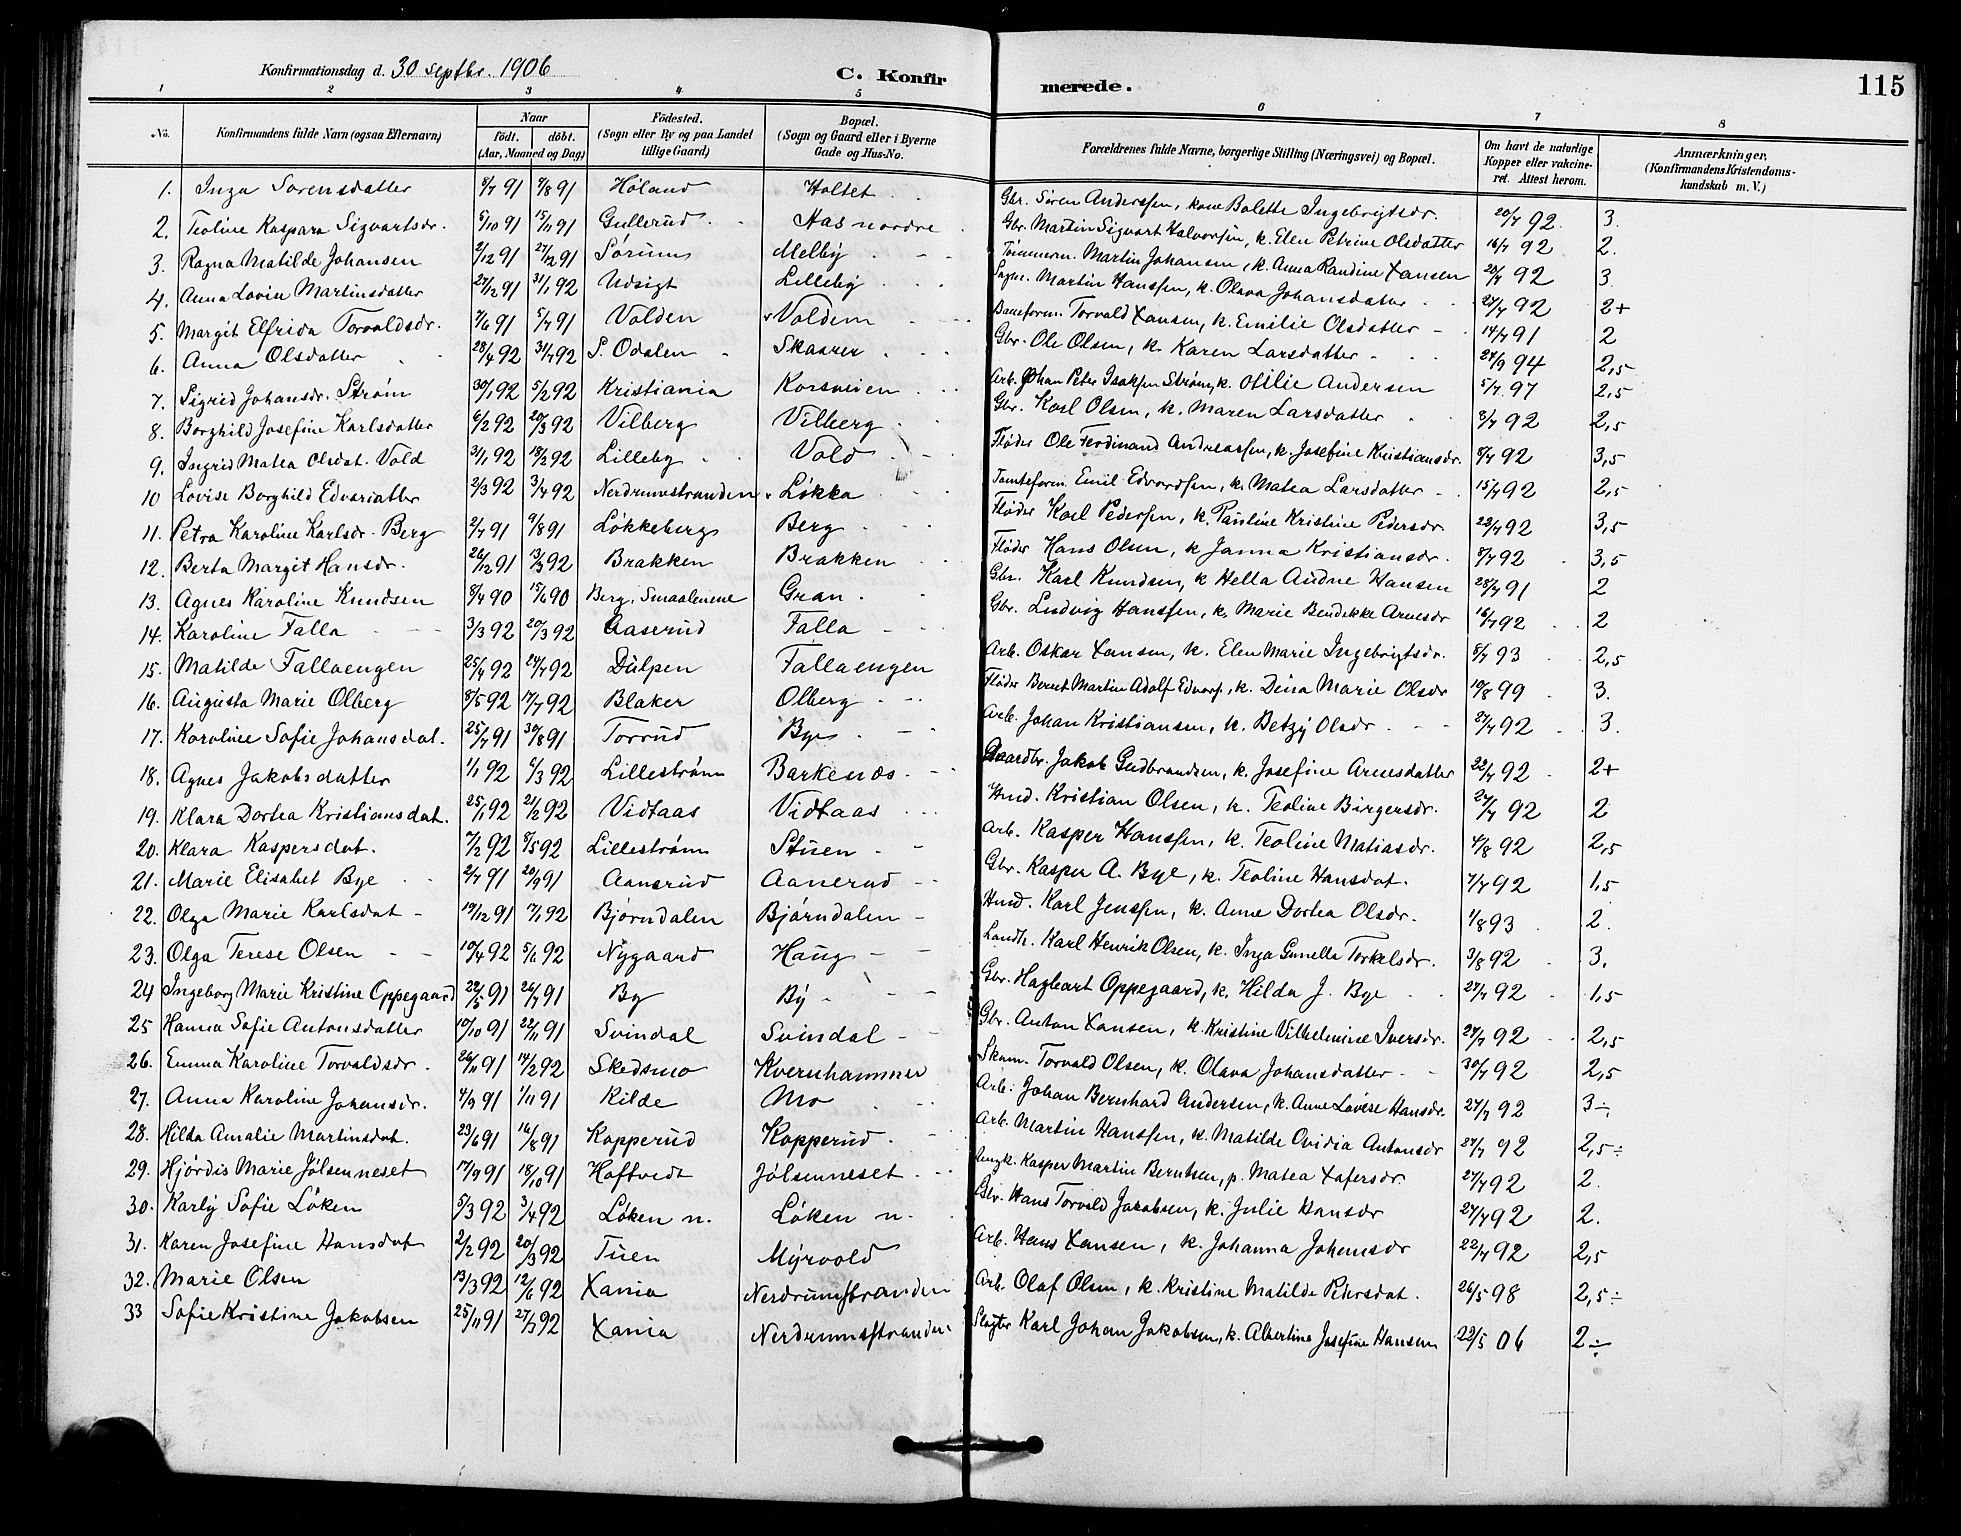 Konfirmationsdag d. 30 septbr. 1906 C. Konfirmerede. 115
1 2 3 4 5 6 7 8
No. Konfirmandens fulde Navn (ogsaa Efternavn) Naar födt. döbt. (Aar, Maaned og Dag) Födested. (Sogn eller By og paa Landet tillige Gaard) Bopæl. (Sogn og Gaard eller i Byerne Gade og Hus-No. Forældrenes fulde Navne, borgerlige Stilling (Næringsvei) og Bopæl. Om havt de naturlige Kopper eller vakcineret. Attest herom. Anmærkninger. (Konfirmandens Kristendomskundskab m. V.)
1. Inga Sorensdatter 8/7 91 9/8 91 Höland Holtet Gbr. Sören Anderssen, kone Bolette Ingebrigtsdr. 20/7 92. 3.
2. Teoline Kaspara Sigvartsdr. 5/10 91 15/11 91 Gullerud Has nordre Gbr. Martin Sigvart Halvorsen, k. Elen Petrine Olsdatter 16/7 92 2.
3. Ragna Matilde Johansen 2/12 91 27/12 91 Sørum Melby Tømmerm. Martin Johansen, k. Anna Randine Xansen 20/7 92 3.
4. Anna Lovise Martinsdatter 27/12 91 31/1 92 Udsigt Lilleby Martin Hanssen, k. Olava Johansdatter 27/7 92 2+
5. Margit Elfrida Torvaldsdr. 7/6 91 5/7 91 Volden Voldem Baneform. Torvald Xansen, k. Emilie Olsdatter 14/7 91 2
6. Anna Olsdatter 28/4 92 31/7 92 S. Odalen Skaarer Gbr. Ole Olsen, k. Karen Larsdatter 24/9 94 2,5
7. Sigrid Johansdr. Strøm 30/1 92 5/2 92 Kristiania Korsveien Arb. Johan Peter Isaksen Strøm, k. Otilie Andersen 5/7 97 2,5
8. Borghild Josefine Karlsdatter 6/2 92 20/3 92 Vilberg Vilberg Gbr. Karl Olsen, k. Maren Larsdatter 8/7 92 2,5
9. Ingrid Matea Olsdat. Vold 3/1 92 18/2 92 Lilleby Vold Fløder Ole Ferdinand Andreassen, k. Josefine Kristiansdr. 8/7 92 3,5
10 Lovise Borghild Edvardatter 2/3 92 3/4 92 Nerdrumstranden Løkka Tomteform. Emil Edvardsen, k. Matea Larsdatter 15/7 92 2,5
11. Petra Karoline Karlsdr. Berg 2/7 91 9/8 91 Løkkeberg Berg Fløder Karl Pedersen, k. Pauline Kristine Pedersdr. 22/7 92 3,5
12. Berta Margit Hansdr. 26/12 91 13/3 92 Brakken Brakken Fløder Hans Olsen, k Janna Kristiansdr. 8/7 92 3,5
13. Agnes Karoline Knudsen 8/4 90 15/6 90 Berg, Smaalenene Gran Gbr. Karl Knudsen, k Hella Audne Hansen 28/7 91 2
14. Karoline Falla 3/3 92 20/3 92 Aaserud Falla Gbr. Ludvig Hanssen, k. Marie Bendekke Arnesdr 16/7 92 2
15. Matilde Fallaengen 25/4 92 24/7 92 Dulpen Fallaengen Arb. Oskar Xansen, k. Elen Marie Ingebrigtsdr. 8/7 93 2,5
16. Augusta Marie Olberg 8/5 92 17/7 92 Blaker Olberg Fløder Bernt Martin Adolf Edvars., k. Dina Marie Olsdr 10/8 99 3.
17. Karoline Sofie Johansdat. 25/7 91 30/8 91 Torrud Bye Arb. Johan Kristiansen, k. Betzy Olsdr. 8/7 92 3.
18. Agnes Jakobsdatter 1/1 92 6/3 92 Lillestrøm Barkenæs Gaardbr. Jakob Gudbrandsen, k. Josefine Arnesdatter 22/7 92 2+
19. Klara Dortea Kristiansdat. 25/1 92 21/2 92 Vidtaas Vidtaas Hmd. Kristian Olsen, k. Teoline Birgersdr. 27/7 92 2
20. Klara Kaspersdat. 7/2 92 8/5 92 Lillestrøm Stuen Arb. Kasper Hanssen, k. Teoline Matiasdr. 4/8 92 2,5
21. Marie Elisabet Bye 2/7 91 20/9 91 Aanerud Aanerud Gbr. Kasper A. Bye, k. Teoline Hansdat. 7/7 92 1,5
22. Olga Marie Karlsdat 19/12 91 17/1 92 Bjørndalen Bjørndalen Hmd. Karl Jenssen, k. Anne Dortea Olsdr. 1/8 93 2.
23. Olga Terese Olsen 10/4 92 5/6 92 Nygaard Haug Landh. Karl Henrik Olsen, k. Inga Gunella Torkelsdr. 3/8 92 3.
24 Ingeborg Marie Kristine Oppegaard 22/5 91 26/7 91 By By Gbr. Hagbart Oppegaard, k. Hilda J. Bye 27/7 92 1,5
25 Hanna Sofie Antonsdatter 10/10 91 22/11 91 Svindal Svindal Gbr. Anton Xansen, k. Kristine Vilhelmine Iversdr. 27/7 92 2,5
26. Emma Karoline Torvaldsdr. 26/11 91 14/2 92 Skedsmo Kvernhammer Skom. Torvald Olsen, k. Olava Johansdatter 30/7 92 2,5
27. Anna Karoline Johansdr. 4/9 91 1/11 91 Kilde Mo Arb. Johan Bernhard Andersen, k. Anne Lovise Hansdr. 27/7 92 3÷
28. Hilda Amalie Martinsdat. 23/6 91 16/8 91 Kopperud Kopperud Arb. Martin Hanssen, k. Matilde Ovidia Antonsdr 27/7 92 2,5÷
29. Hjørdis Marie Jølsenneset 17/9 91 18/10 91 Hoftvedt Jølsenneset Ungk. Kasper Martin Berntsen, p. Matea Xofersdr 27/7 92 2.
30. Karly Sofie Løken 5/3 92 3/4 92 Løken n. Løken n. Gbr. Hans Torvald Jacobsen, k. Julie Hansdr 27/7 92 2.
31. Karen Josefine Hansdat 2/2 92 20/3 92 Tuen Myrvold Arb. Hans Xansen, k. Johanna Johansdr 22/7 92 2,5
32. Marie Olsen 13/3 92 12/6 92 Xania Nerdrumstranden Arb. Olaf Olsen, k. Kristine Matilde Pedersdat. 26/5 98 2,5÷
33 Sofie Kristine Jakobsen 25/11 91 27/3 92 Xania Nerdrumstranden Slagter Karl Johan Jakobsen, k. Albertine Josefine Hansen 22/5 06 2÷